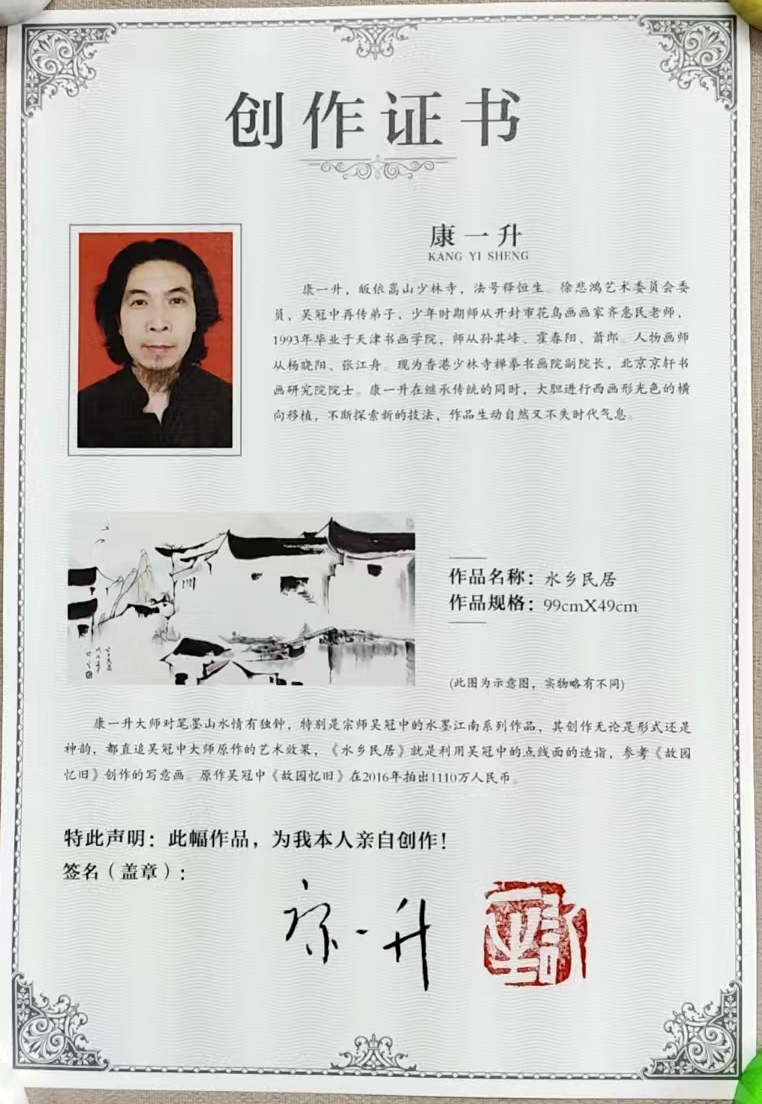 创作证书
康一升
KANG YI SHENG
康一升，皈依嵩山少林寺，法号释恒生。徐悲鸿艺术委员会委
员，吴冠中再传弟子，少年时期师从开封市花鸟画画家齐惠民老师，
1993年毕业于天津书画学院，师从孙其峰、霍春阳、萧郎。人物画师
从杨晓阳、张江舟。现为香港少林寺禅拳书画院副院长，北京京轩书
画研究院院士。康一升在继承传统的同时，大胆进行西画形光色的横
向移植，不断探索新的技法，作品生动自然又不失时代气息。
作品名称：水乡民居
作品规格：99cmX49cm
(此图为示意图，实物略有不同)
康一升大师对笔墨山水情有独钟，特别是宗师吴冠中的水墨江南系列作品，其创作无论是形式还是
神韵，都直追吴冠中大师原作的艺术效果，《水乡民居》就是利用吴冠中的点线面的造诣，参考《故园
忆旧》创作的写意画。原作吴冠中《故园忆旧》在2016年拍出1110万人民币。
特此声明：此幅作品，为我本人亲自创作！
签名（盖章）：
康一升